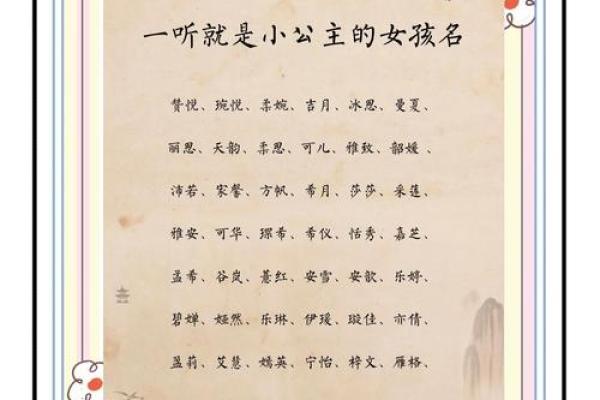 一听就是小公主的女孩名
赞悦、琬悦、柔婉、吉月、冰思、曼夏、
丽思、天韵、柔思、可儿、雅致、韶媛、
沛若、宋馨、方帆、希月、莎莎、采莲、
雅安、可华、璟希、希仪、恬秀、嘉芝、
孟希、谷岚、薏红、安雪、安歆、乐婷、
碧婵、娅然、乐琳、伊瑗、璇佳、亦倩、
盈莉、艾慧、嫣英、宁怡、梓文、雁格、